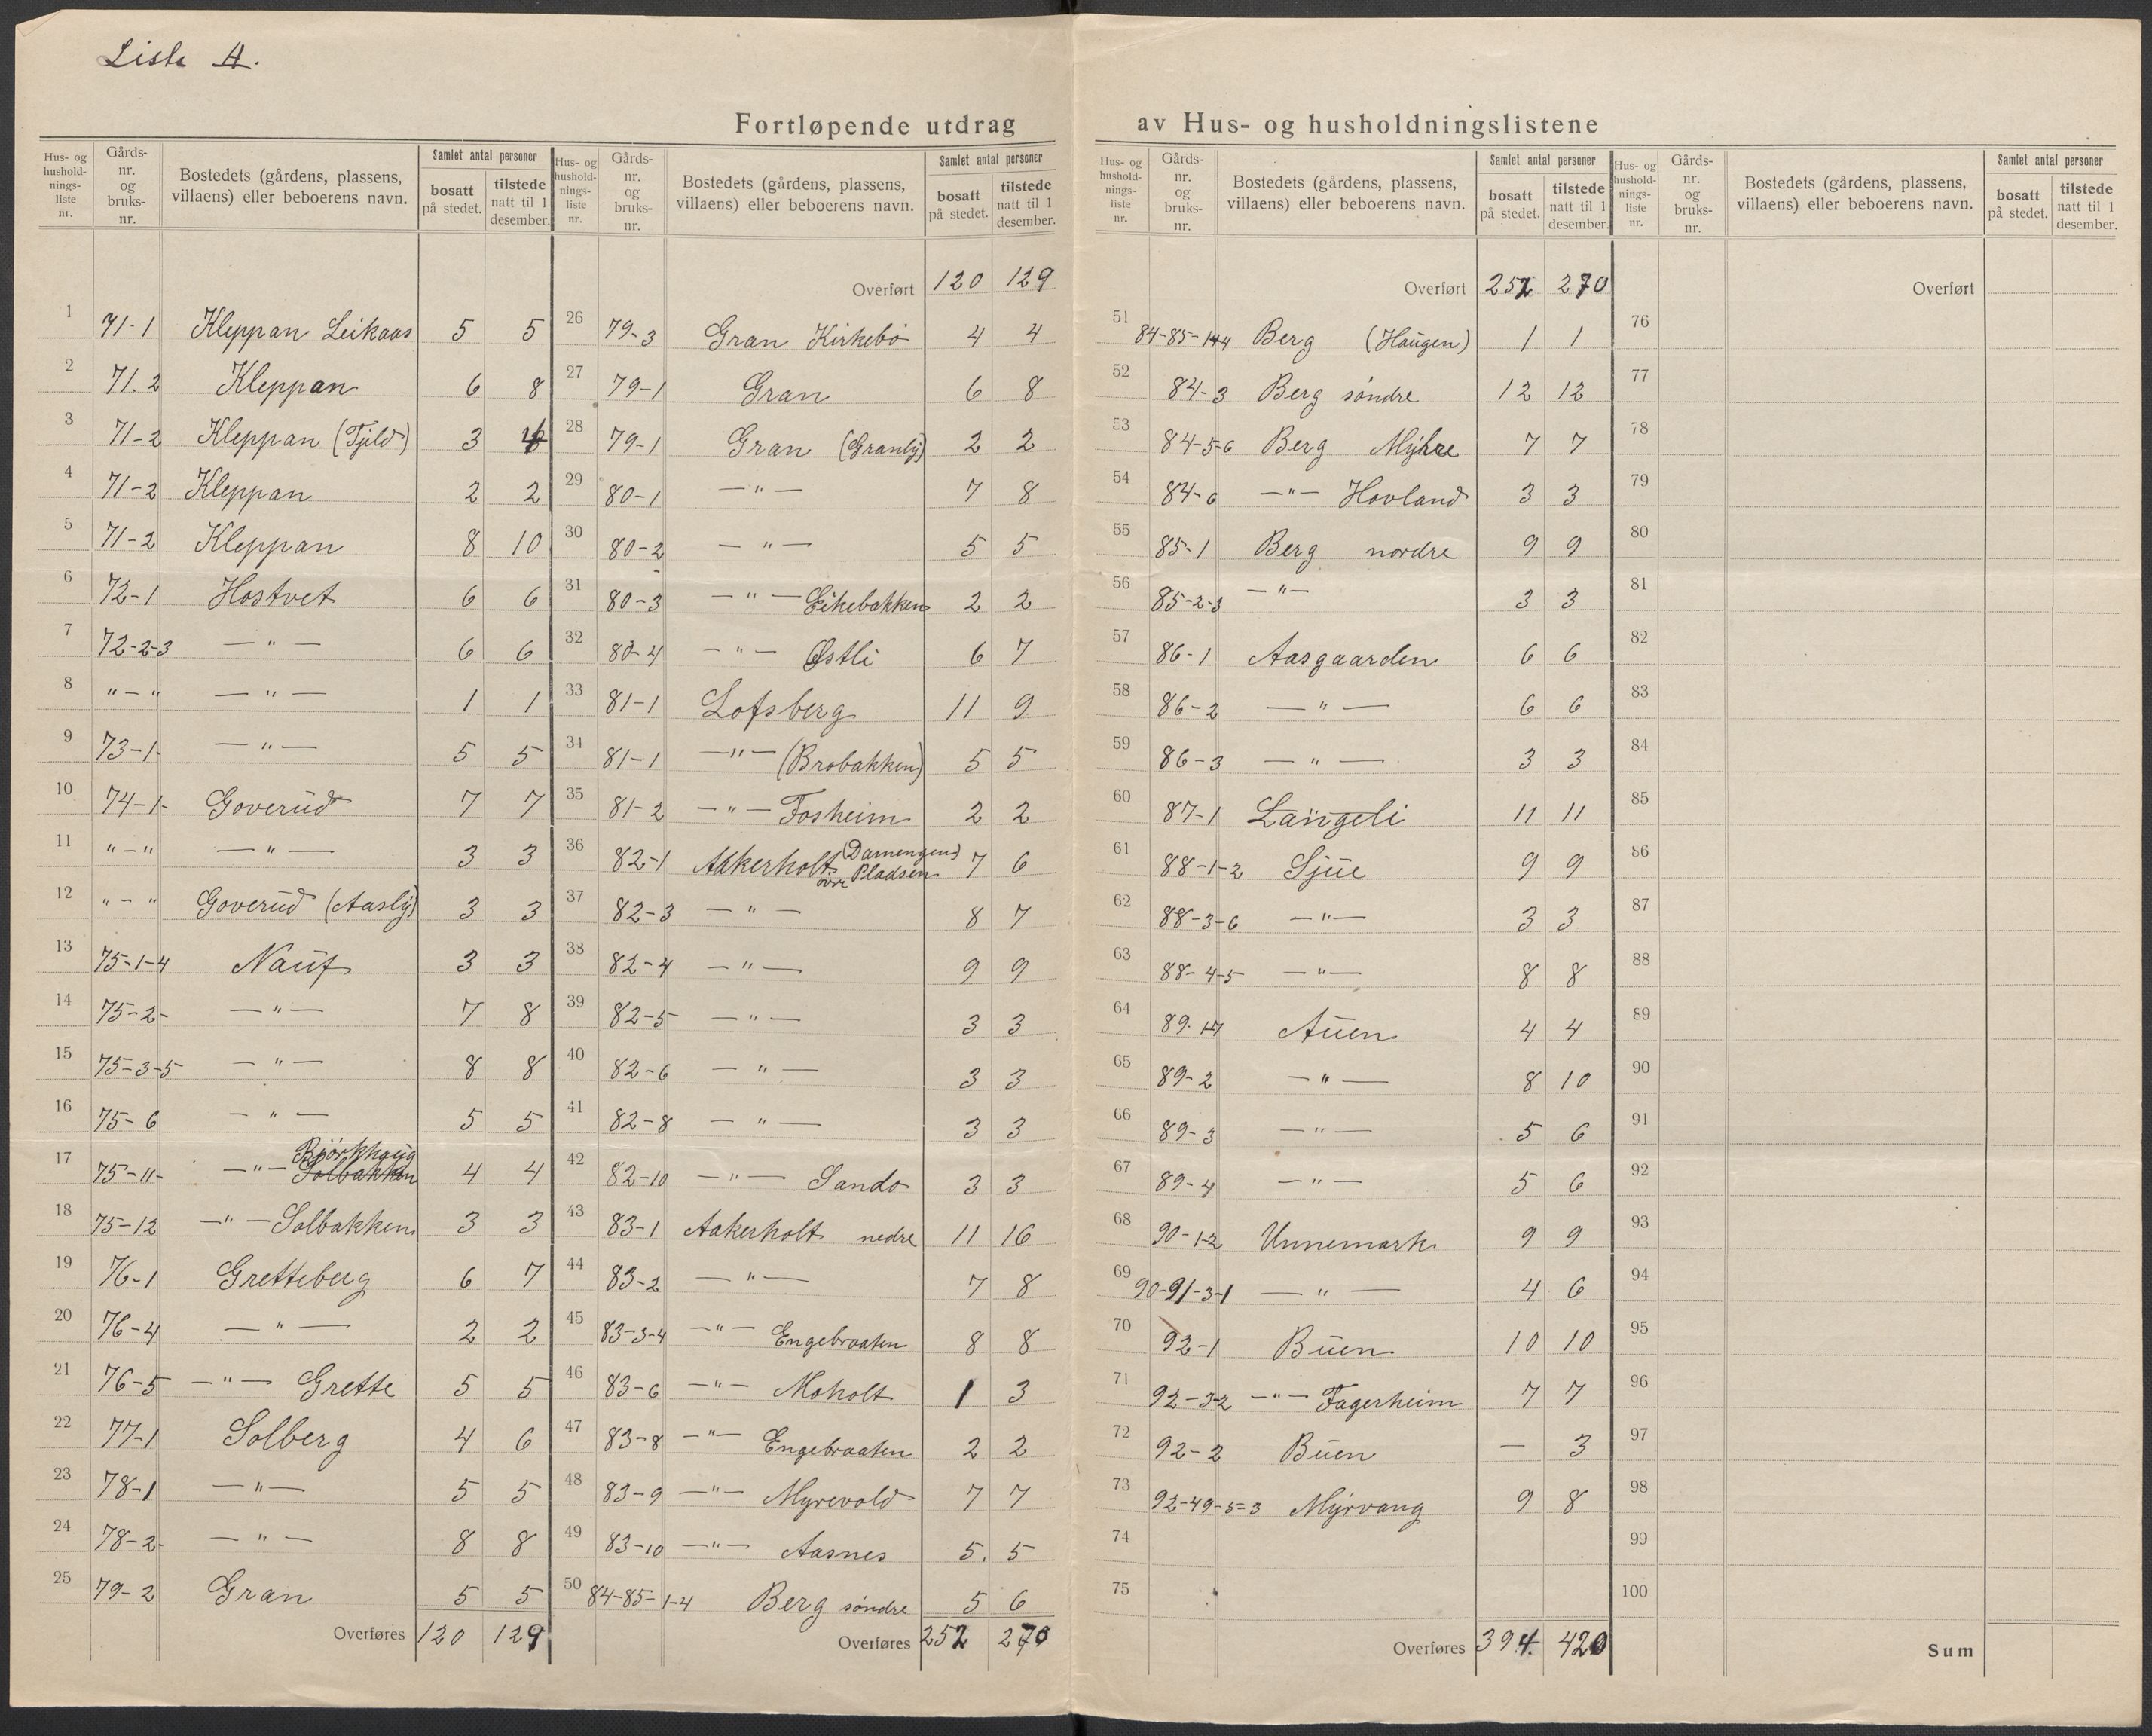 Liste A.
Fortløpende utdrag av Hus- og husholdningslistene
Hus- og hushold-nings-liste nr. Gårds-nr. og bruks-nr. Bostedets (gårdens, plassens, villaens) eller beboerens navn. Samlet antal personer bosatt på stedet. tilstede natt til 1 desember.
1 71-1 Kleppan Leikaas 5 5
2 71.2 Kleppan 6 8
3 71-2 Kleppan (Tjeld) 3 4
4 71-2 Kleppan 2 2
5 71-2 Kleppan 8 10
6 72-1 Hostvet 6 6
7 72-2-3 — " — 6 6
8 " - " — " — 1 1
9 73-1- — " — 5 5
10 74-1- Goverud 7 7
11 " - " — " — 3 3
12 " - " Goverud (Aasly) 3 3
13 75-1-4 Nauf 3 3
14 75-2- — " — 7 8
15 75-3-5 — " — 8 8
16 75-6 — " — 5 5
17 75-11- — " — Björkhaug Solbakken 4 4
18 75-12 — " — Solbakken 3 3
19 76-1 Gretteberg 6 7
20 76-4 — " — 2 2
21 76-5 — " — Grette 5 5
22 77-1 Solberg 4 6
23 78-1 — " — 5 5
24 78-2- — " — 8 8
25 79-2 Gran 5 5
Overføres 120 129
Hus- og hushold-nings-liste nr. Gårds-nr. og bruks-nr. Bostedets (gårdens, plassens, villaens) eller beboerens navn. Samlet antal personer bosatt på stedet. tilstede natt til 1 desember.
Overført 120 129
26 79-3 Gran Kirkebö 4 4
27 79-1 Gran 6 8
28 79-1 Gran (Granly) 2 2
29 80-1 — " — 7 8
30 80-2 — " — 5 5
31 80-3 — " — Eikebakken 2 2
32 80-4 — " — Østli 6 7
33 81-1 Lofsberg 11 9
34 81-1 — " — (Brobakken) 5 5
35 81-2 — " — Fosheim 2 2
36 82-1 Aakerholt övre (Damengen) Pladsen 7 6
37 82-3 — " — 8 7
38 82-4 — " — 9 9
39 82-5 — " — 3 3
40 82-6 — " — 3 3
41 82-8 — " — 3 3
42 82-10 — " — Sando 3 3
43 83-1 Aakerholt nedre 11 16
44 83-2 — " — 7 8
45 83-3-4 — " — Engebraaten 8 8
46 83-6 — " — Moholt 1 3
47 83-8 — " — Engebraaten 2 2
48 83-9 — " — Myrevold 7 7
49 83-10 — " — Aasnes 5. 5
50 84-85-1-4 Berg söndre 5 6
Overføres 252 270
Hus- og hushold-nings-liste nr. Gårds-nr. og bruks-nr. Bostedets (gårdens, plassens, villaens) eller beboerens navn. Samlet antal personer bosatt på stedet. tilstede natt til 1 desember.
Overført 252 270
51 84-85-1-4 Berg (Haugen) 1 1
52 84-3 Berg söndre 12 12
53 84-5-6 Berg Myhre 7 7
54 84-6 — " — Hovland 3 3
55 85-1 Berg nordre 9 9
56 85-2-3 — " — 3 3
57 86-1 Aasgaarden 6 6
58 86-2 — " — 6 6
59 86-3 — " — 3 3
60 87-1 Langeli 11 11
61 88-1-2 Sjue 9 9
62 88-3-6 — " — 3 3
63 88-4-5 — " — 8 8
64 89. Auen 4 4
65 89-2 — " — 8 10
66 89-3 — " — 5 6
67 89-4 — " — 5 6
68 90-1-2 Unnemark 9 9
69 90-91-3-1 — " — 4 6
70 92-1 Buen 10 10
71 92-3-2 — " — Fagerheim 7 7
72 92-2 Buen — 3
73 92-49-5=3 Myrvang 9 8
74
75
Overføres 394. 420
Hus- og hushold-nings-liste nr. Gårds-nr. og bruks-nr. Bostedets (gårdens, plassens, villaens) eller beboerens navn. Samlet antal personer bosatt på stedet. tilstede natt til 1 desember.
Overført
76
77
78
79
80
81
82
83
84
85
86
87
88
89
90
91
92
93
94
95
96
97
98
99
100
Sum